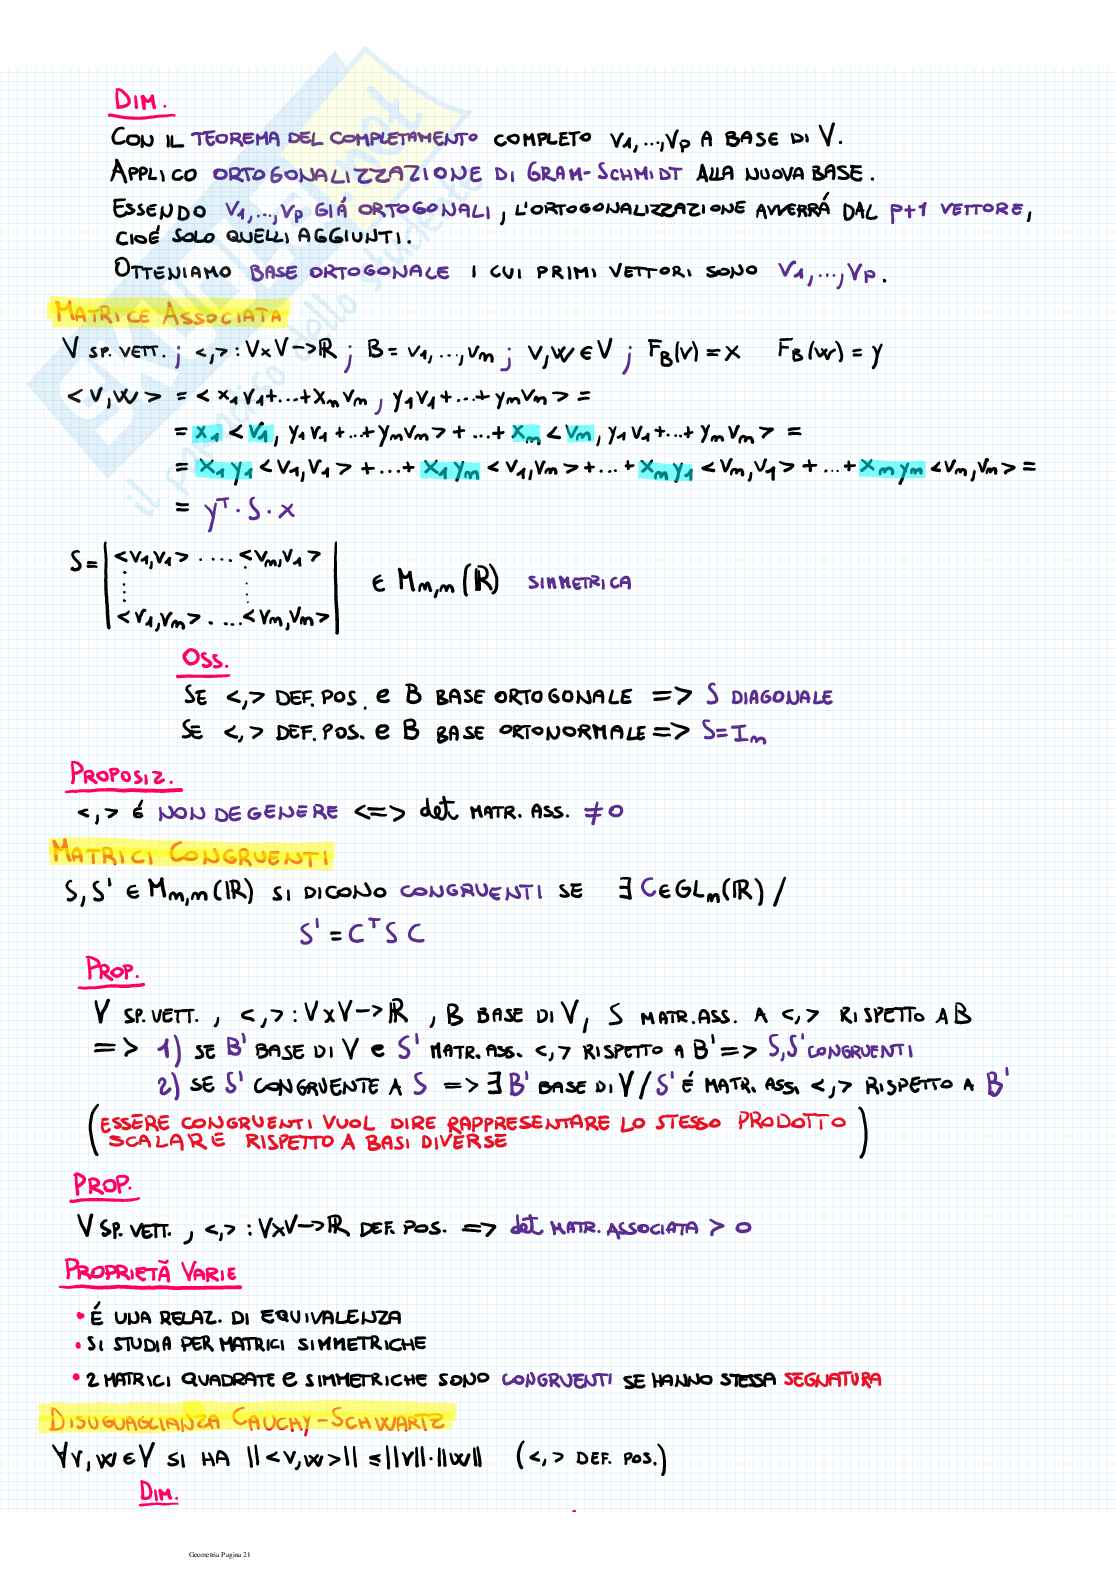 DIM.
CON IL TEOREMA DEL COMPLETAMENTO COMPLETO V1,...,Vp A BASE DI V.
APPLICO ORTOGONALIZZAZIONE DI GRAM-SCHMIDT ALLA NUOVA BASE.
ESSENDO V1,...,Vp GIÁ ORTOGONALI, L'ORTOGONALIZZAZIONE AVVERRÁ DAL p+1 VETTORE,
CIOÉ SOLO QUELLI AGGIUNTI.
OTTENIAMO BASE ORTOGONALE I CUI PRIMI VETTORI SONO V1,...,Vp.
MATRICE ASSOCIATA
V SP. VETT. ; <,> : V×V->ℝ ; B = v1,...,vm ; v,w ∈ V ; FB(v) = x FB(w) = y
<v,w> = <x1v1+...+xmvm, y1v1+...+ymvm> =
= x1 <v1, y1v1+...+ymvm> + ...+ xm <vm, y1v1+...+ymvm> =
= x1y1 <v1,v1> +...+ x1ym <v1,vm> +...+ xmy1 <vm,v1> + ...+ xmym <vm,vm> =
= yᵀ · S · x
S = | <v1,v1> .... <vm,v1> |
| <v1,vm> .... <vm,vm> | ∈ Mm,m(ℝ) SIMMETRICA
OSS.
SE <,> DEF. POS. e B BASE ORTOGONALE => S DIAGONALE
SE <,> DEF. POS. e B BASE ORTONORMALE => S=Im
PROPOSIZ.
<,> É NON DEGENERE <=> det MATR. ASS. ≠0
MATRICI CONGRUENTI
S,S' ∈ Mm,m(ℝ) SI DICONO CONGRUENTI SE ∃ C∈GLm(ℝ) /
S' = CᵀSC
PROP.
V SP. VETT. , <,> : V×V->ℝ , B BASE DI V, S MATR. ASS. A <,> RISPETTO A B
=> 1) SE B' BASE DI V e S' MATR. ASS. <,> RISPETTO A B' => S,S' CONGRUENTI
2) SE S' CONGRUENTE A S => ∃ B' BASE DI V / S' É MATR. ASS. <,> RISPETTO A B'
(ESSERE CONGRUENTI VUOL DIRE RAPPRESENTARE LO STESSO PRODOTTO
SCALARE RISPETTO A BASI DIVERSE)
PROP.
V SP. VETT. , <,> : V×V->ℝ DEF. POS. => det MATR. ASSOCIATA > 0
PROPRIETĂ VARIE
• É UNA RELAZ. DI EQUIVALENZA
• SI STUDIA PER MATRICI SIMMETRICHE
• 2 MATRICI QUADRATE e SIMMETRICHE SONO CONGRUENTI SE HANNO STESSA SEGNATURA
DISUGUAGLIANZA CAUCHY-SCHWARTZ
∀v,w∈V SI HA ||<v,w>|| ≤||v||·||w|| (<,> DEF. POS.)
DIM.
Geometria Pagina 21